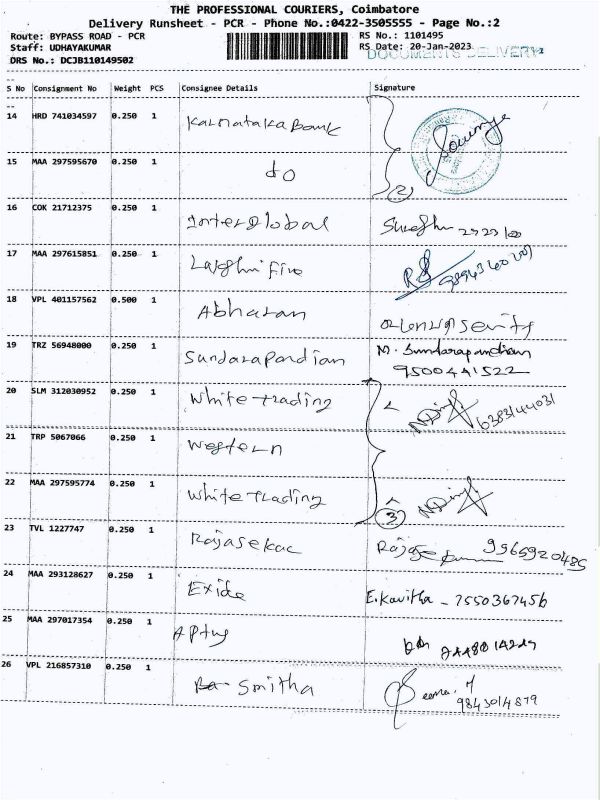 THE PROFESSIONAL COURIERS, Coimbatore
Delivery Runsheet - PCR - Phone No.:0422-3505555 - Page No.:2
Route: BYPASS ROAD - PCR RS No.: 1101495
Staff: UDHAYAKUMAR RS Date: 20-Jan-2023
DOCUMENTS DELIVERY
DRS No.: DCJB110149502
S No Consignment No Weight PCS Consignee Details Signature
14 HRD 741034597 0.250 1 Karnataka Bank
15 MAA 297595670 0.250 1 do
2
16 COK 21712375 0.250 1 Interglobal
17 MAA 297615851 0.250 1 Laxshmi Fire
18 VPL 401157562 0.500 1 Abharan
19 TRZ 56948000 0.250 1 Sundarapandian M. Sundarapandian
9500441522
20 SLM 312030952 0.250 1 White trading 6383144031
21 TRP 5067066 0.250 1 Western
22 MAA 297595774 0.250 1 White trading
3
23 TVL 1227747 0.250 1 Rajasekar 9965920485
24 MAA 293128627 0.250 1 Exide E. Kavitha - 7550367456
25 MAA 297017354 0.250 1
26 VPL 216857310 0.250 1 Smitha
9843014879